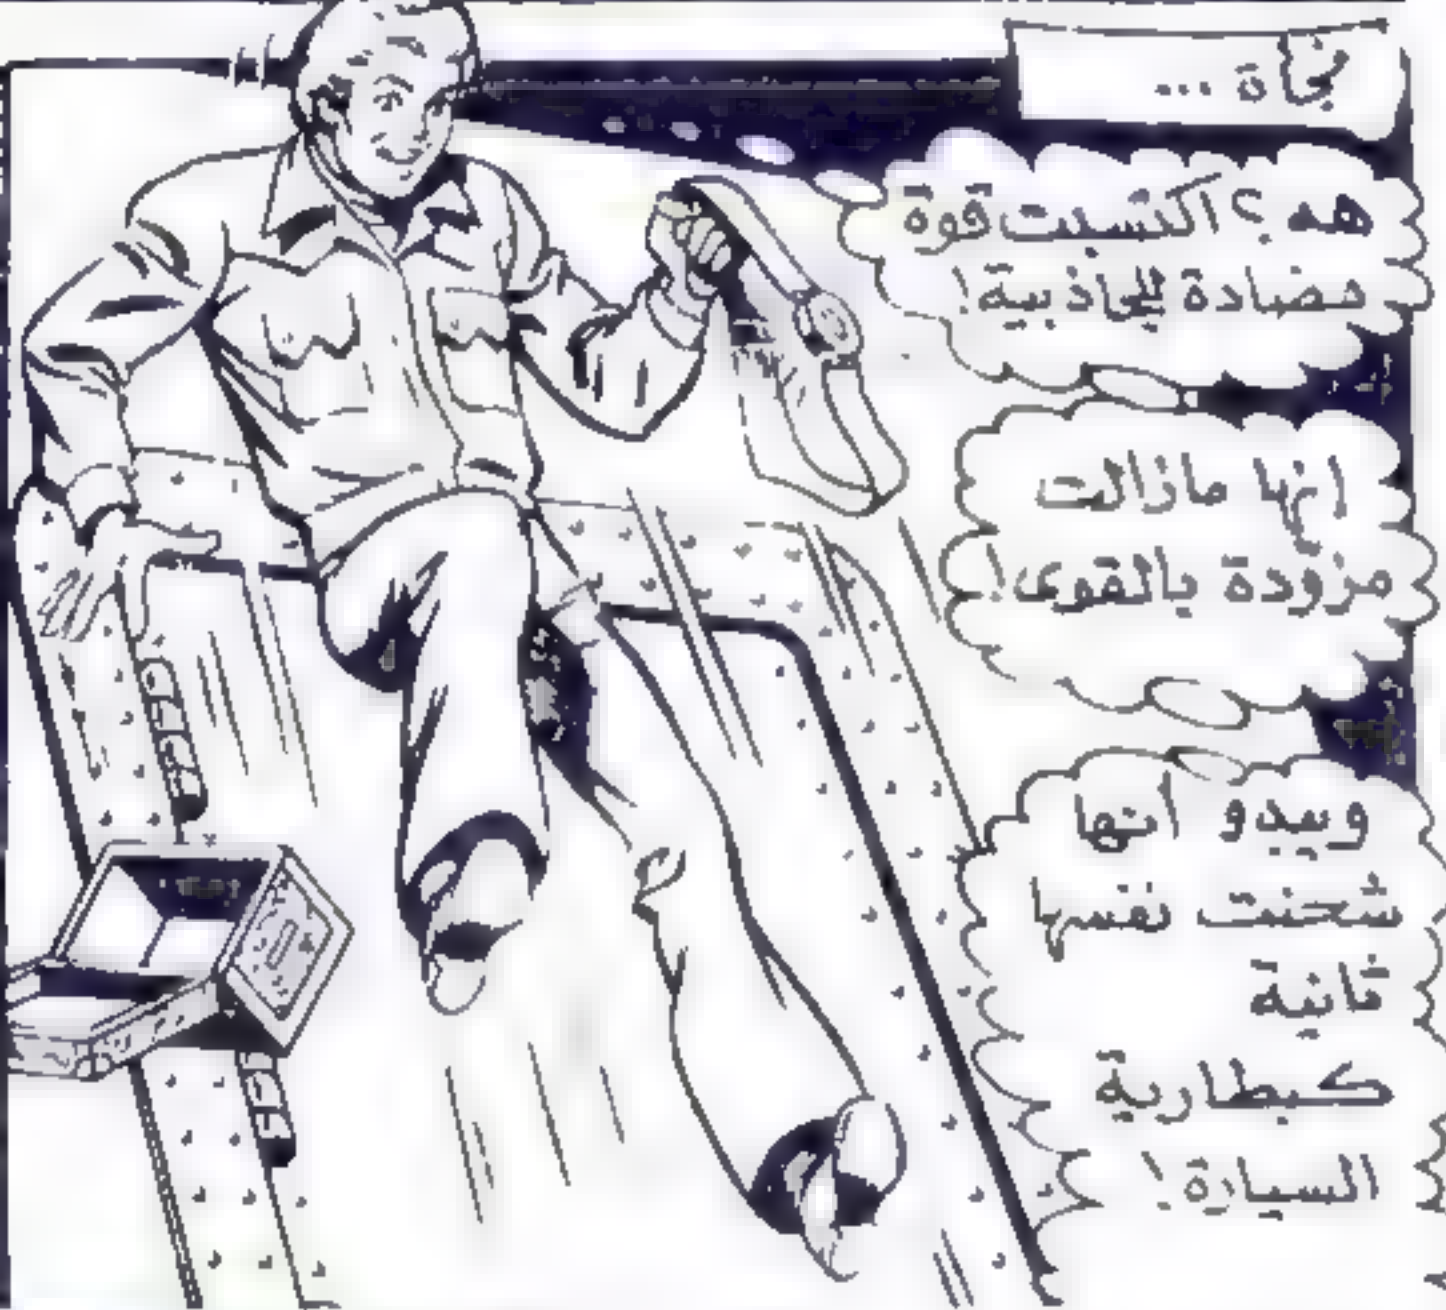 فجأة ...
هه ؟ اكتسبت قوة
مضادة للجاذبية !
انها مازالت
مزودة بالقوى !
ويبدو أنها
شحنت نفسها
ثانية
كبطارية
السيارة !